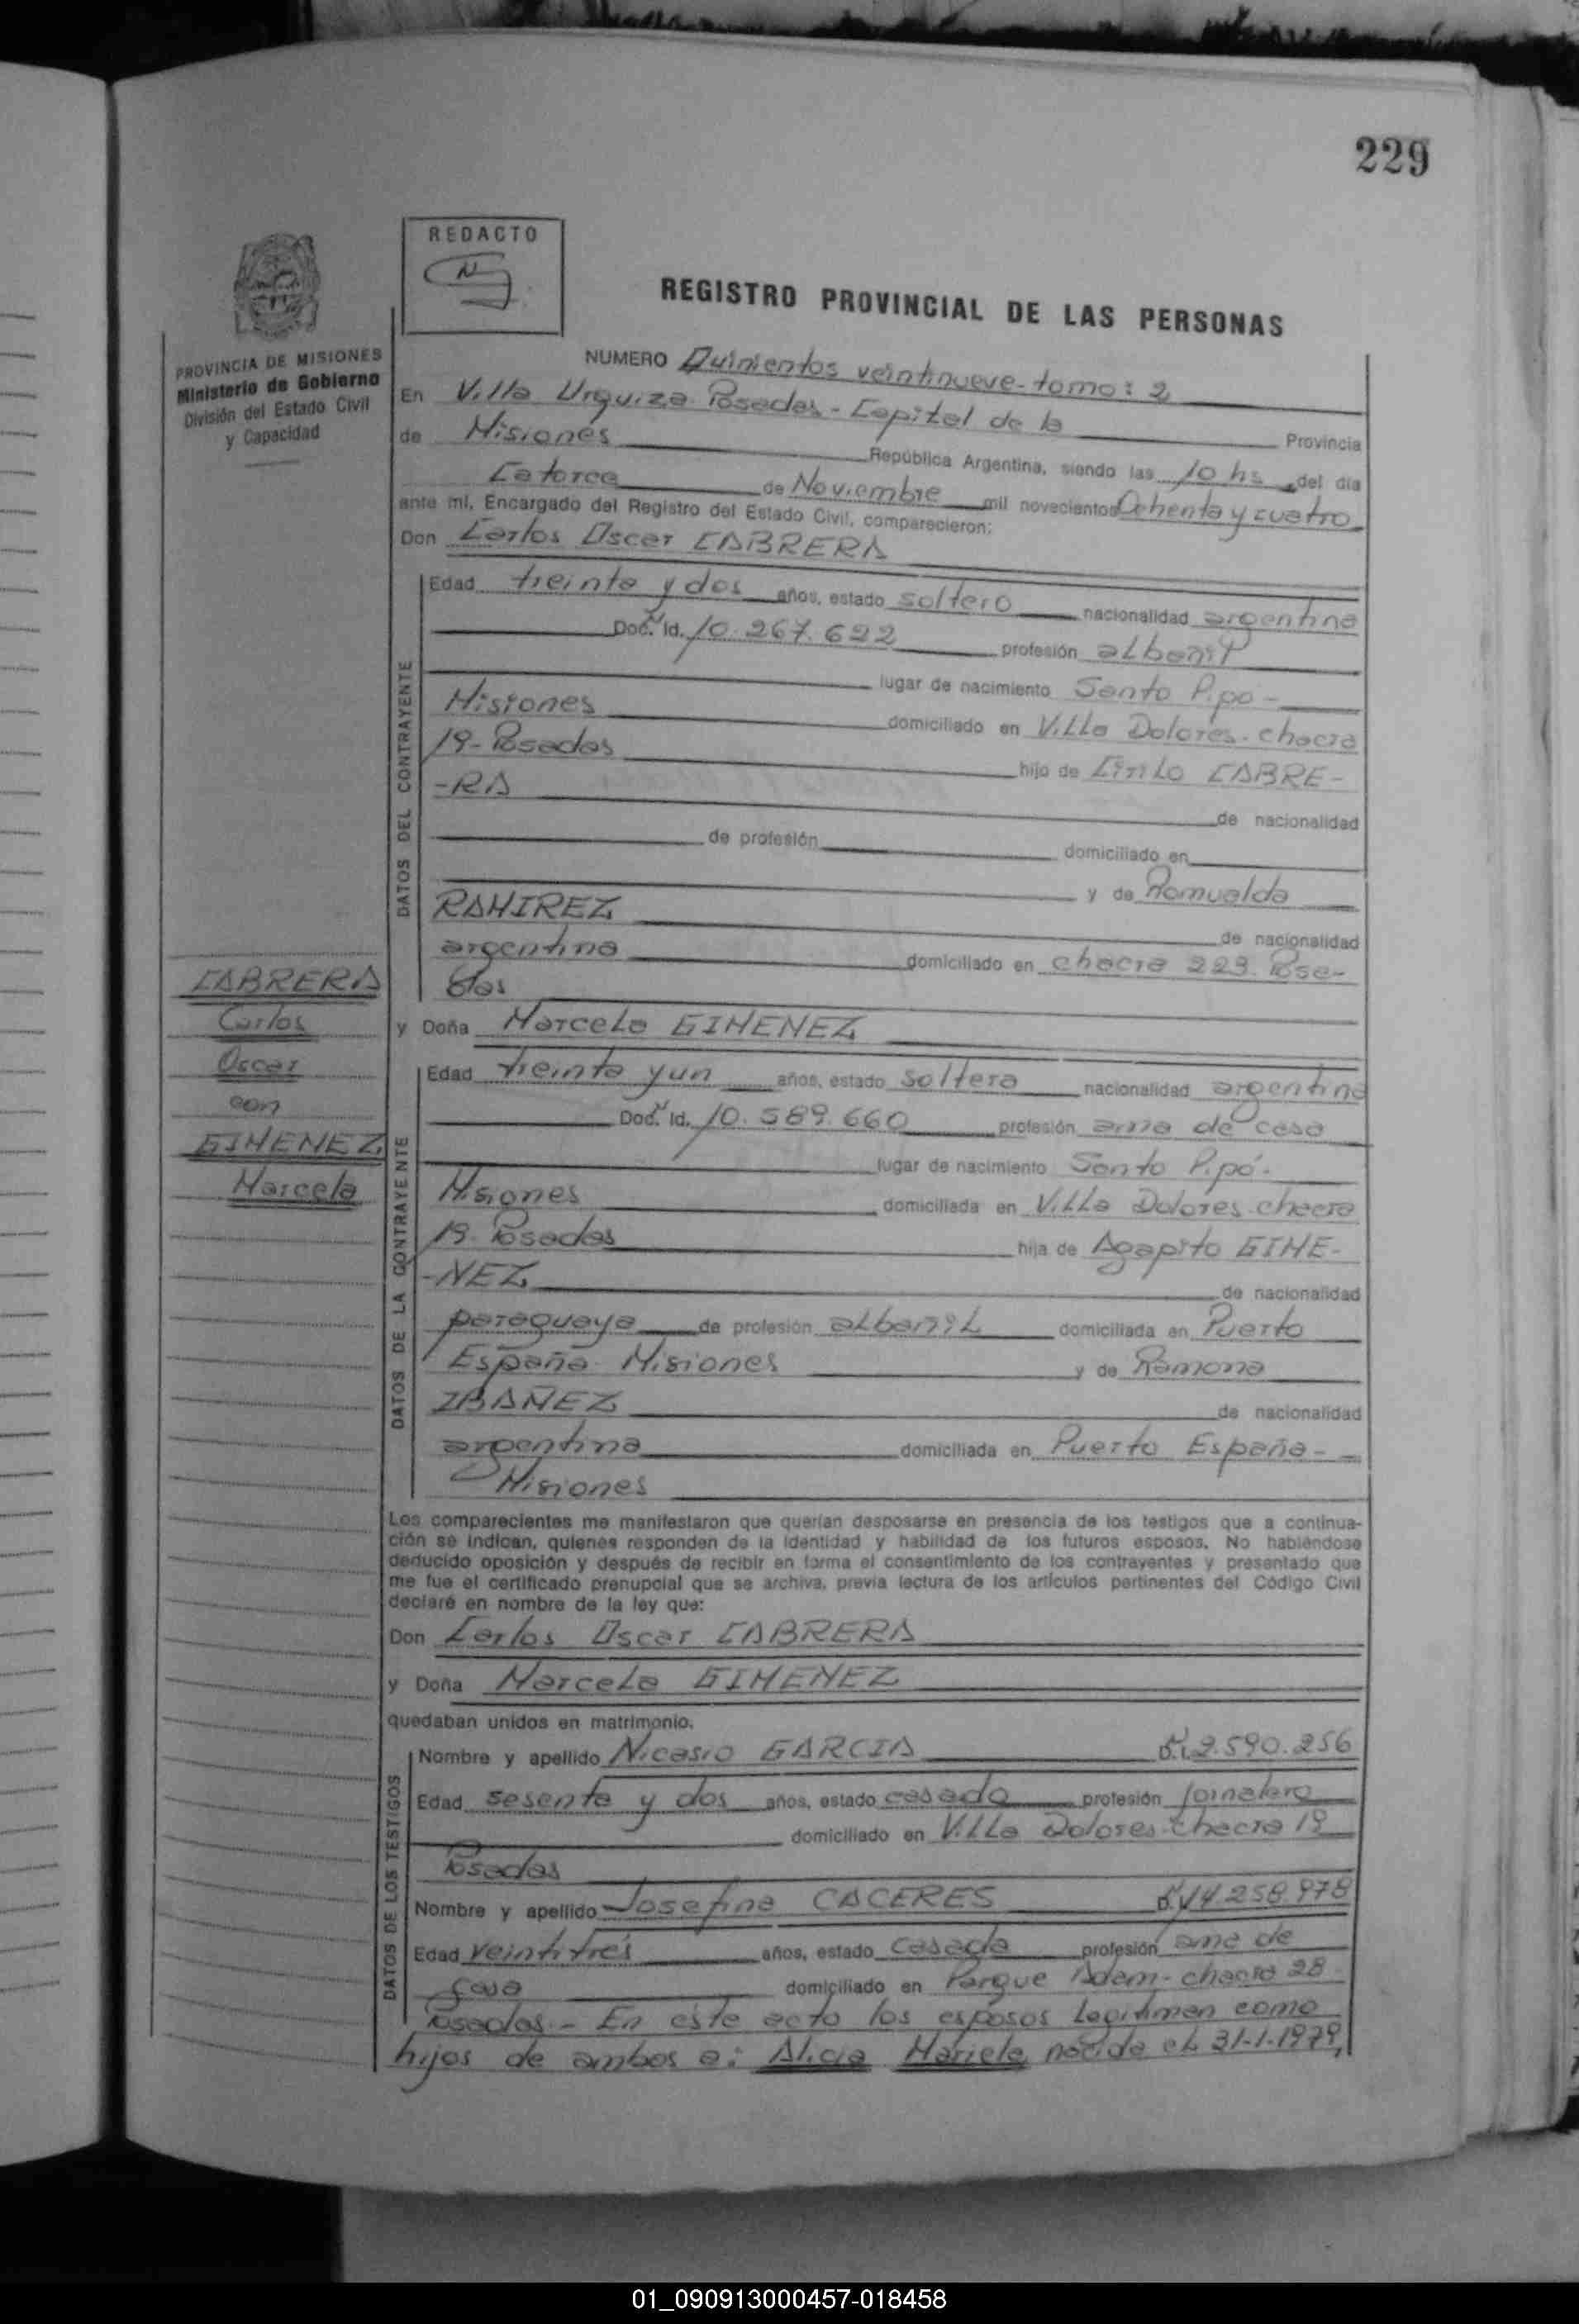 229
REDACTO
REGISTRO PROVINCIAL DE LAS PERSONAS
PROVINCIA DE MISIONES
Ministerio de Gobierno
División del Estado Civil
y Capacidad
NUMERO Quinientos veintinueve-tomo: 2
En Villa Urquiza Posadas - Capital de la Provincia
de Misiones República Argentina, siendo las 10 hs del día
Catorce de Noviembre mil novecientos Ochenta y cuatro
ante mí, Encargado del Registro del Estado Civil, comparecieron:
Don Carlos Oscar CABRERA
DATOS DEL CONTRAYENTE
Edad treinta y dos años, estado soltero nacionalidad argentina
Doc. Id. 10.267.622 profesión albañil
lugar de nacimiento Santo Pipó -
Misiones domiciliado en Villa Dolores. chacra
19- Posadas hijo de Cirilo CABRE-
-RA de nacionalidad
de profesión domiciliado en
y de Romualda
RAMIREZ de nacionalidad
argentina domiciliado en chacra 229. Posa-
das
y Doña Marcela GIMENEZ
DATOS DE LA CONTRAYENTE
Edad treinta y un años, estado soltera nacionalidad argentina
Doc. Id. 10.589.660 profesión ama de casa
lugar de nacimiento Santo Pipó-
Misiones domiciliada en Villa Dolores. chacra
19- Posadas hija de Agapito GIME-
-NEZ de nacionalidad
paraguaya de profesión albañil domiciliada en Puerto
España- Misiones y de Ramona
IBAÑEZ de nacionalidad
argentina domiciliada en Puerto España-
Misiones
CABRERA
Carlos
Oscar
con
GIMENEZ
Marcela
Los comparecientes me manifestaron que querían desposarse en presencia de los testigos que a continua-
ción se indican, quienes responden de la identidad y habilidad de los futuros esposos. No habiéndose
deducido oposición y después de recibir en forma el consentimiento de los contrayentes y presentado que
me fue el certificado prenupcial que se archiva, previa lectura de los artículos pertinentes del Código Civil
declaré en nombre de la ley que:
Don Carlos Oscar CABRERA
y Doña Marcela GIMENEZ
quedaban unidos en matrimonio.
DATOS DE LOS TESTIGOS
Nombre y apellido Nicasio GARCIA 2.590.256
Edad sesenta y dos años, estado casado profesión jornalero
domiciliado en Villa Dolores-chacra 19
Posadas
Nombre y apellido Josefina CACERES 14.258.978
Edad veintitrés años, estado casada profesión ama de
casa domiciliado en Parque Adam- chacra 28
Posadas.- En éste acto los esposos legitiman como
hijos de ambos a: Alicia Mariela nacida el 31-1-1979,
01_090913000457-018458